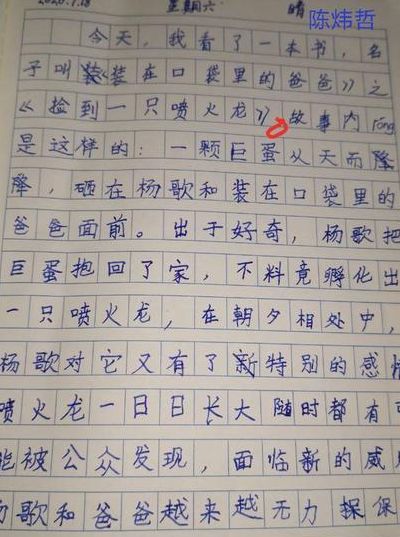 2020.7.18 星期六 晴
陈炜哲
今天，我看了一本书，名
子叫《装在口袋里的爸爸》之
《捡到一只喷火龙》，故事内róng
是这样的：一颗巨蛋从天而降
降，砸在杨歌和装在口袋里的
爸爸面前。出于好奇，杨歌把
巨蛋抱回了家，不料竟孵化出
一只喷火龙，在朝夕相处中，
杨歌对它又有了新特别的感情
喷火龙一日日长大随时都有可
能被公众发现，面临新的威
杨歌和爸爸越来越无力保